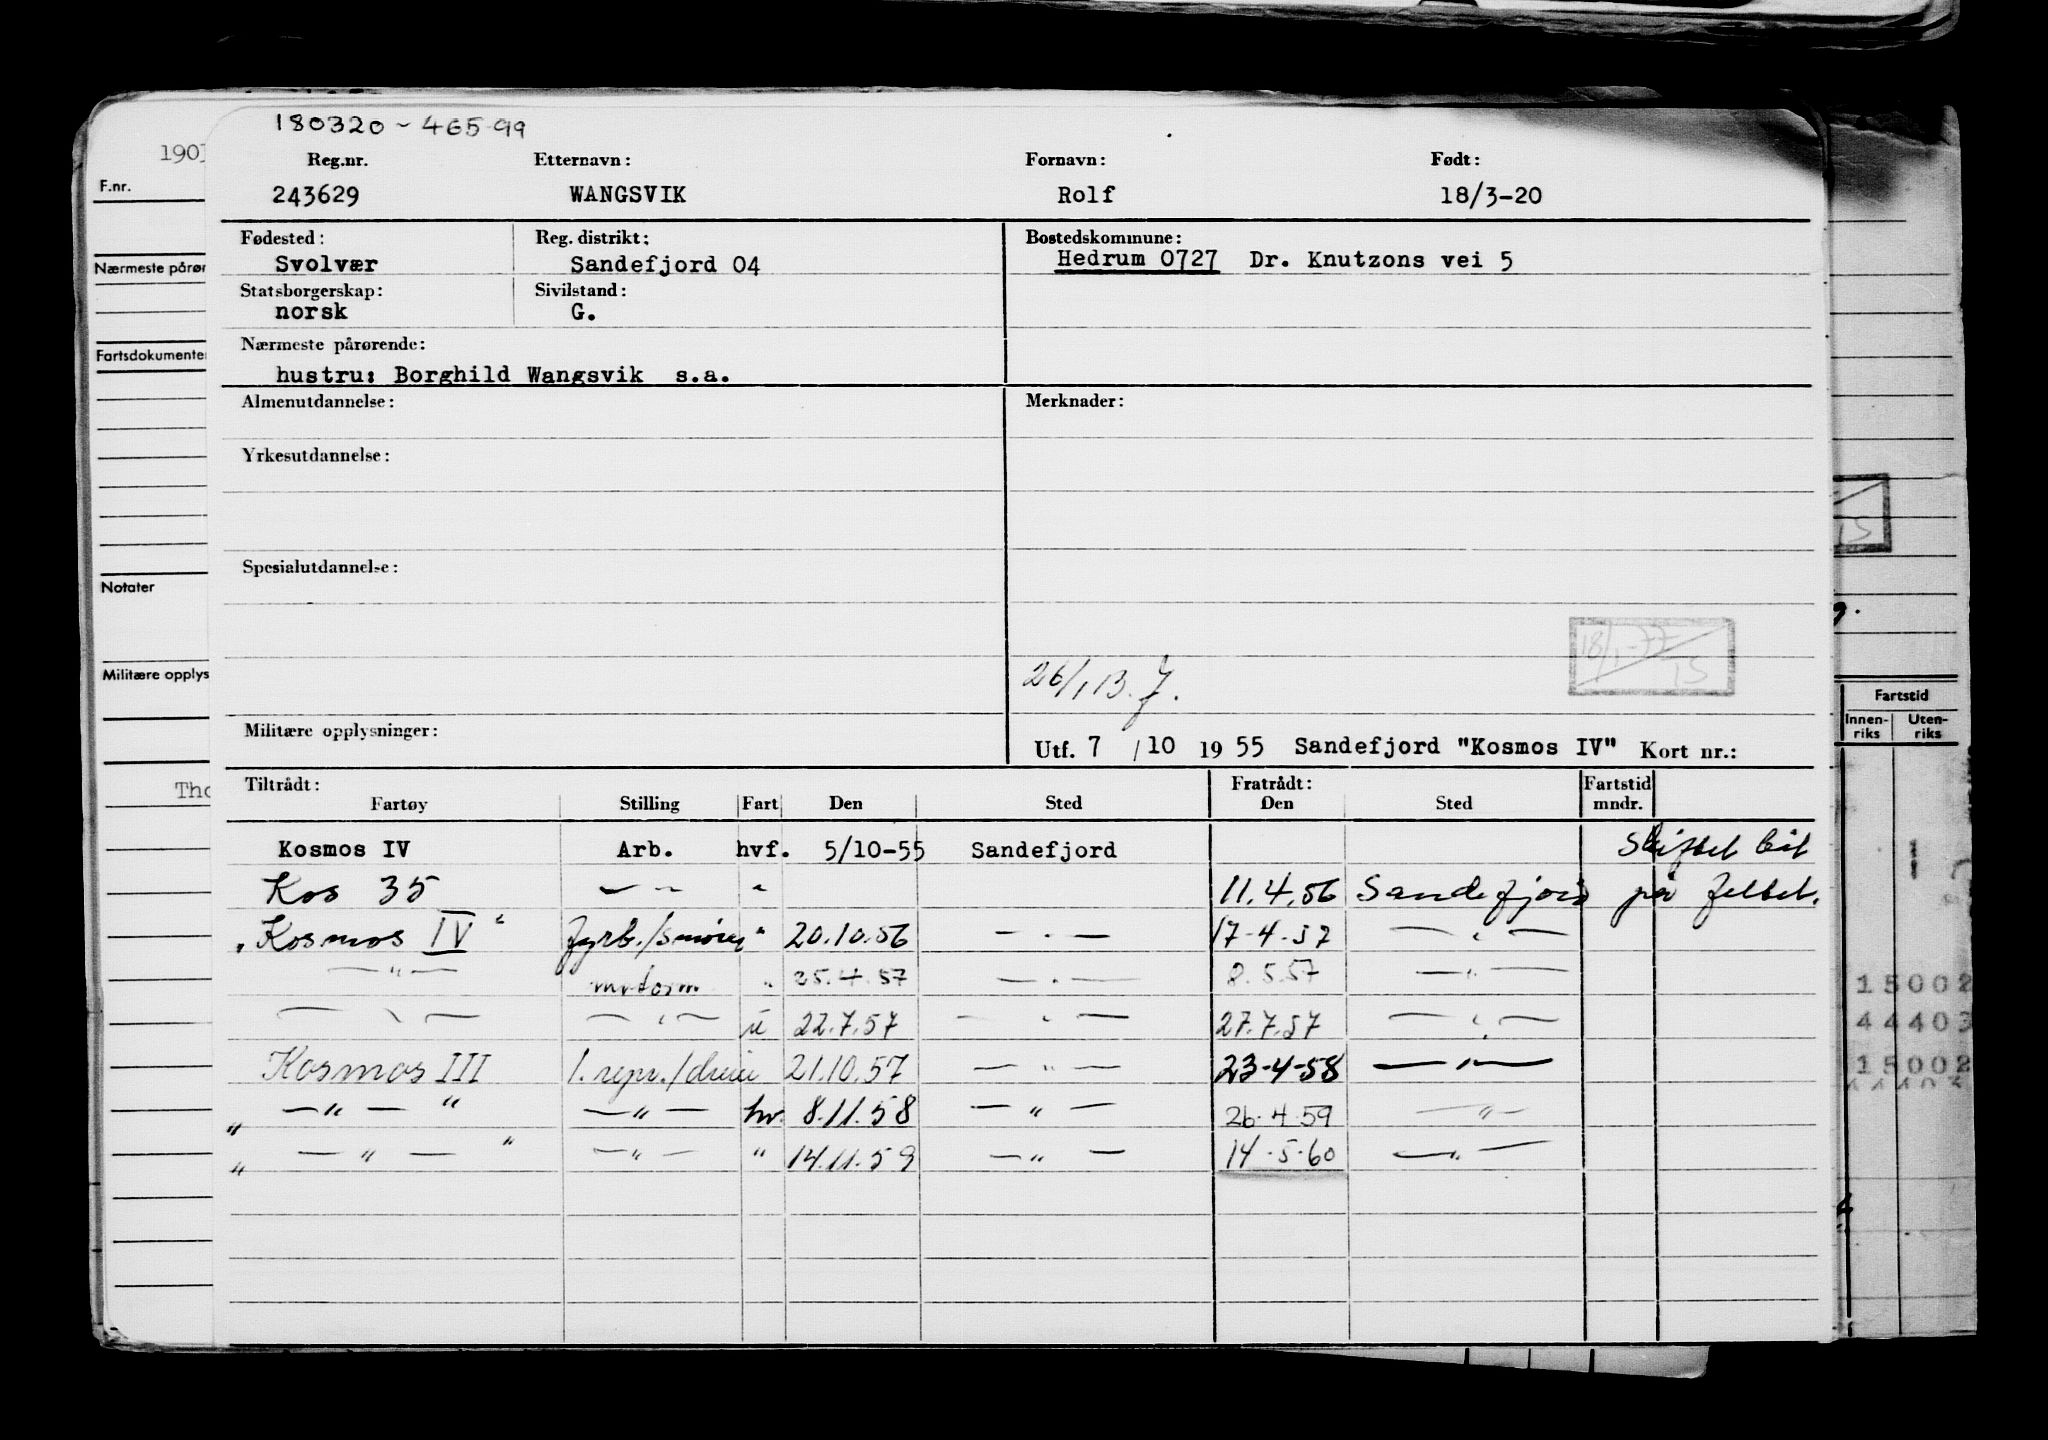 180320-46599
Reg.nr. Etternavn: Fornavn: Født:
243629 WANGSVIK Rolf 18/3-20
Fødested: Reg. distrikt: Bostedskommune:
Svolvær Sandefjord 04 Hedrum 0727 Dr. Knutzons vei 5
Statsborgerskap: Sivilstand:
norsk G.
Nærmeste pårørende:
hustru: Borghild Wangsvik s.a.
Almenutdannelse: Merknader:
Yrkesutdannelse:
Spesialutdannelse:
18/1-77
15
26/1 13. J.
Militære opplysninger:
Utf. 7/10 1955 Sandefjord "Kosmos IV" Kort nr.:
Tiltrådt: Fratrådt: Fartstid
Fartøy Stilling Fart Den Sted Den Sted mndr.
Kosmos IV Arb. hvf. 5/10-55 Sandefjord Skiftet båt
Kos 35 — " — " 11.4.56 Sandefjord på feltet.
"Kosmos IV" fyrb./smører " 20.10.56 — " — 17-4-57 — " —
— " — motorm. " 25.4.57 — " — 8.5.57 — " —
— " — — " — u 22.7.57 — " — 27.7.57 — " —
Kosmos III 1. repr./dreier 21.10.57 — " — 23-4-58 — " —
" — " — " — " — hv. 8.11.58 — " — 26.4.59 — " —
" — " — " — " — " 14.11.59 — " — 14-5-60 — " —
1903
F.nr.
Nærmeste pårør
Fartsdokumente
Notater
Militære opplys
Tho
15
Fartstid
Innen-riks Uten-riks
15002
44403
15002